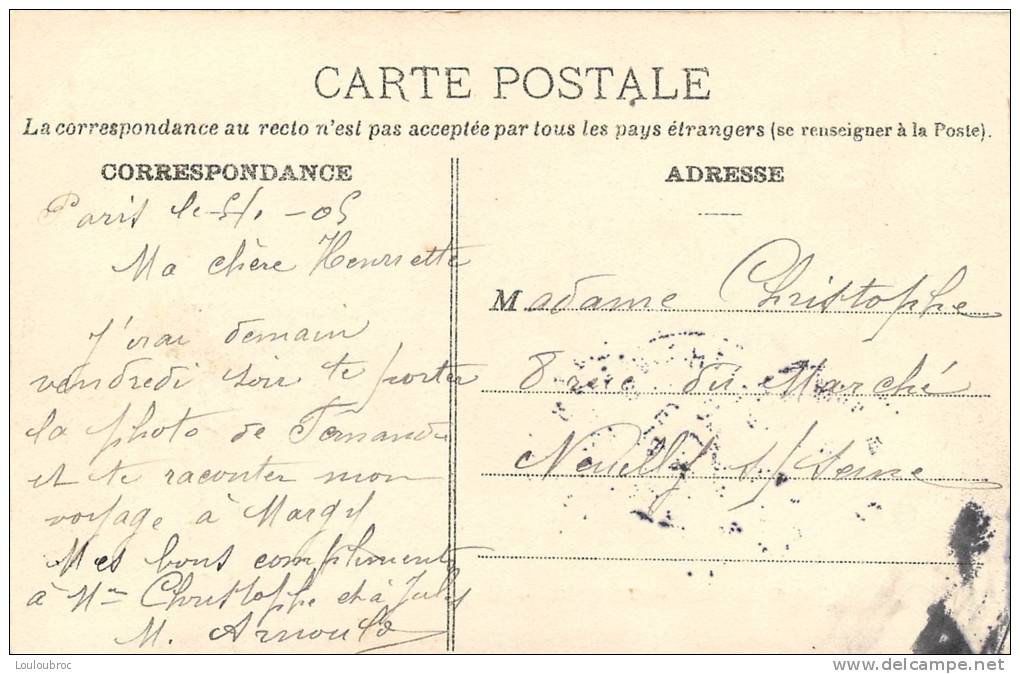 CARTE POSTALE
La correspondance au recto n'est pas acceptée par tous les pays étrangers (se renseigner à la Poste).
CORRESPONDANCE
Paris le 5/. -05
Ma chère Henriette
J'irai demain
vendredi soir te porter
la photo de Fernande
et te raconter mon
voyage à Margy
Mes bons compliments
à Mme Christophe et à Jules
M. Arnould
ADRESSE
Madame Christophe
8 rue du Marché
Neuilly s/ Seine
Louloubroc
delcampe.net